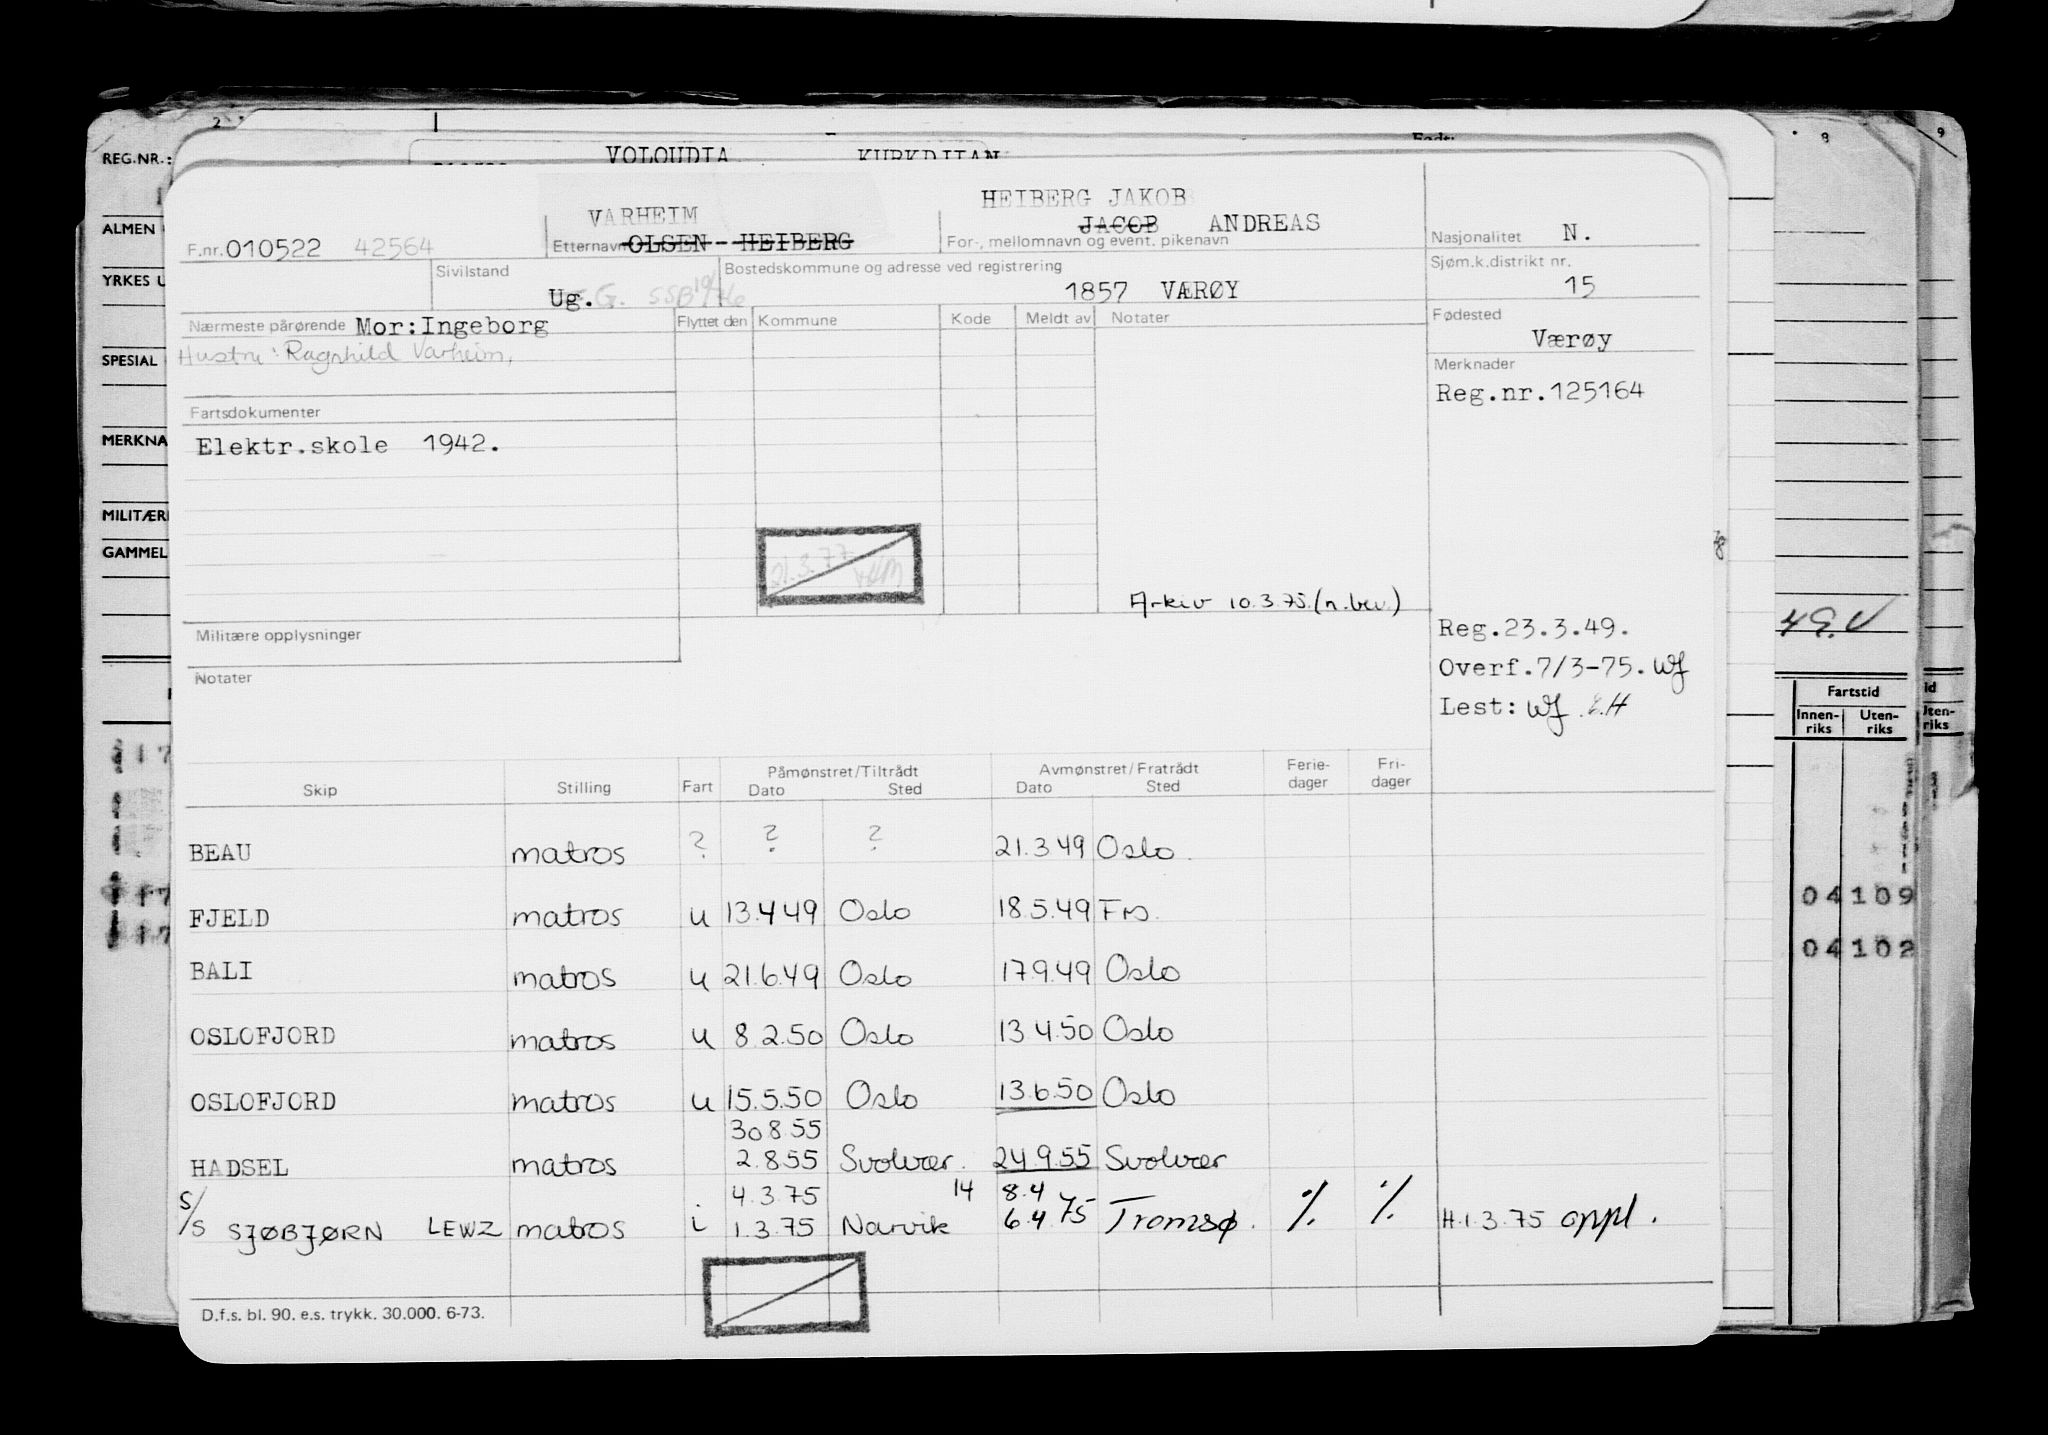 2
8
9
Født:
REG.NR.:
VOLOUDIA KURKDJIAN
ALMEN
YRKES U
SPESIAL
MERKNA
MILITÆR
GAMMEL
HEIBERG JAKOB
VARHEIM
JACOB ANDREAS
F.nr. 010522 42564
Etternavn OLSEN - HEIBERG
For-, mellomnavn og event. pikenavn
Nasjonalitet N.
Sivilstand
Ug. G. SSB 19/76
Bostedskommune og adresse ved registrering
1857 VÆRØY
Sjøm.k.distrikt nr.
15
Nærmeste pårørende Mor: Ingeborg
Hustru: Ragnhild Varheim,
Flyttet den Kommune Kode Meldt av Notater
Fødested
Værøy
Merknader
Reg.nr.125164
Fartsdokumenter
Elektr.skole 1942.
21.3.77
Arkiv 10.3.75.(n.bev.)
Militære opplysninger
Notater
Reg.23.3.49.
Overf.7/3-75. WJ
Lest: WJ E.H
Skip Stilling Fart Påmønstret/Tiltrådt Dato Sted Avmønstret/Fratrådt Dato Sted Ferie-dager Fri-dager
BEAU matros ? ? ? 21.3 49 Oslo.
FJELD matros u 13.4 49 Oslo 18.5.49 Frs.
BALI matros u 21.6.49 Oslo 17.9.49 Oslo
OSLOFJORD matros u 8.2.50 Oslo 13.4.50 Oslo
OSLOFJORD matros u 15.5.50 Oslo 13.6.50 Oslo
30.8.55
HADSEL matros 2.8.55 Svolvær. 24.9.55 Svolvær
4.3.75 14 8.4
S/S SJØBJØRN LEWZ matros i 1.3.75 Narvik 6.4 75 Tromsø. % % H.1.3.75 oppl.
D.f.s. bl. 90. e.s. trykk. 30.000. 6-73.
Fartstid
Innen-riks Uten-riks
Uten-riks
04 109
04 102